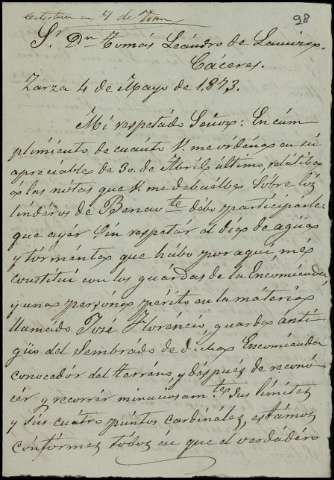 98
Sr. Dn. Tomás Leandro de
Cáceres.
Zarza 4 de Mayo de 1873.
Mi respetado Señor: En cum
plimiento de cuanto V. me ordena en su
apreciable de 30 de Abril último, relativo
a las notas que V. me debuelbe, sobre los
linderos de Benavte. debo participarle
que ayer sin respetar al dia de aguas
y tormentas que hubo por aqui, me
constituí con los guardas de la Encomienda
y unas personas périto en la materia
llamado José Florencio, guarda anti-
güo del Sembrado de dicha Encomienda
conocedor del terreno, y despues de recono
cer y recorrer minuciosamte. sus límites
y sus cuatro puntos cardinales, estamos
conformes todos en que el verdadero